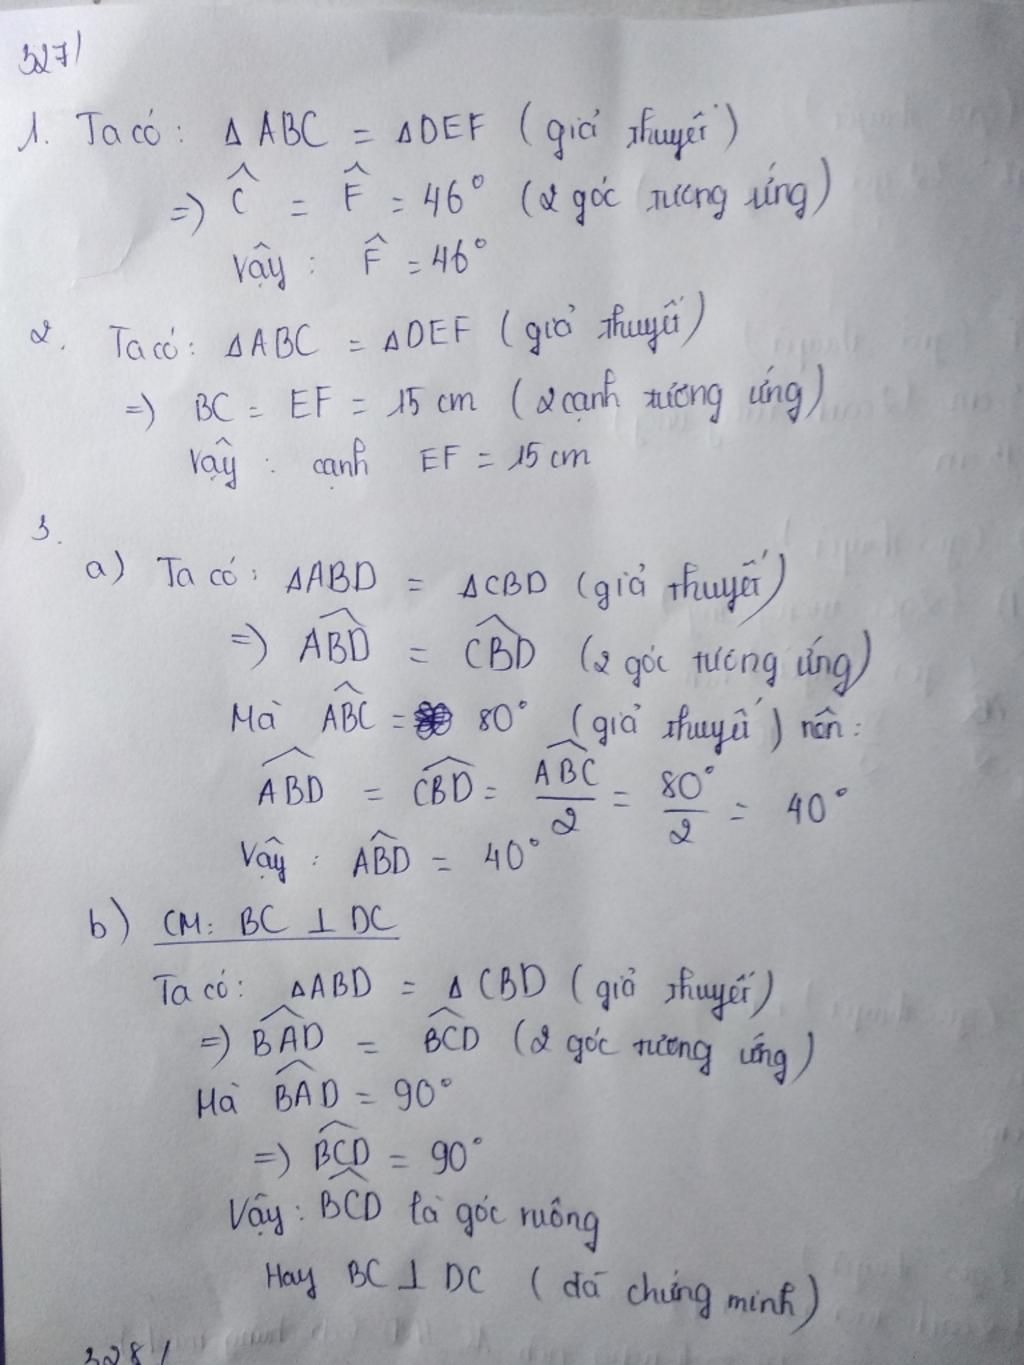 327/
1. Ta có: ΔABC = ΔDEF (giả thuyết)
=> Ĉ = F̂ = 46° (2 góc tương ứng)
Vậy: F̂ = 46°
2. Ta có: ΔABC = ΔDEF (giả thuyết)
=> BC = EF = 15 cm (2 cạnh tương ứng)
Vậy: cạnh EF = 15 cm
3.
a) Ta có: ΔABD = ΔCBD (giả thuyết)
=> \widehat{ABD} = \widehat{CBD} (2 góc tương ứng)
Mà \widehat{ABC} = 80° (giả thuyết) nên:
\widehat{ABD} = \widehat{CBD} = \widehat{ABC}/2 = 80°/2 = 40°
Vậy: \widehat{ABD} = 40°
b) CM: BC ⊥ DC
Ta có: ΔABD = ΔCBD (giả thuyết)
=> \widehat{BAD} = \widehat{BCD} (2 góc tương ứng)
Mà \widehat{BAD} = 90°
=> \widehat{BCD} = 90°
Vậy: \widehat{BCD} là góc vuông
Hay BC ⊥ DC (đã chứng minh)
328/